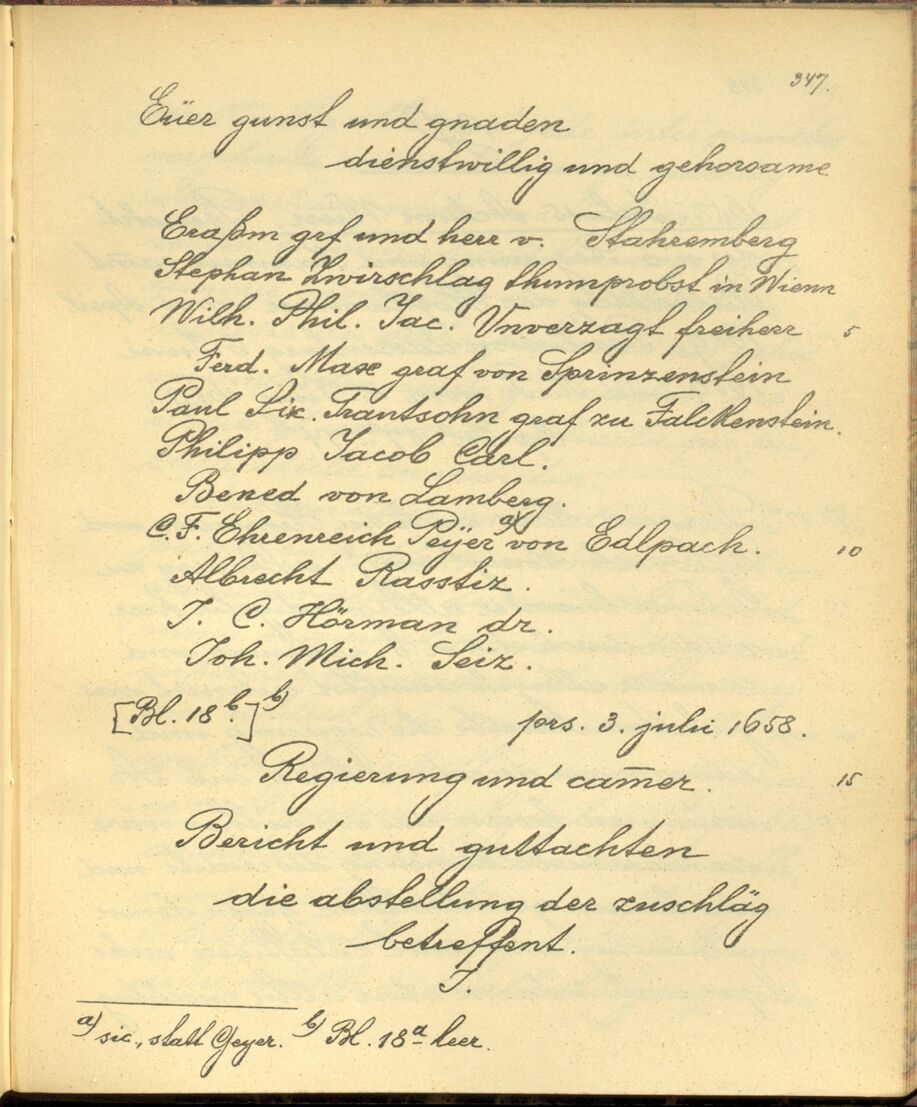 347.
Eüer gunst und gnaden
dienstwillig und gehorsame
Eraßm grf und herr v. Stahremberg
Stephan Zwirschlag thumprobst in Wienn
Wilh. Phil. Jac. Vnverzagt freiherr 5
Ferd. Max graf von Sprinzenstein
Paul Six. Trautsohn graf zu Falckenstein.
Philipp Jacob Carl.
Bened von Lamberg.
C. F. Ehrenreich Peÿer a) von Edlpach. 10
Albrecht Rasstiz.
J. C. Hörman dr.
Joh. Mich. Seiz.
[Bl. 18 b.] b) prs. 3. juli 1658.
Regierung und cam̄er. 15
Bericht und guttachten
die abstellung der zuschläg
betreffent.
J.
a) sic, statt Geyer. b) Bl. 18 a leer.